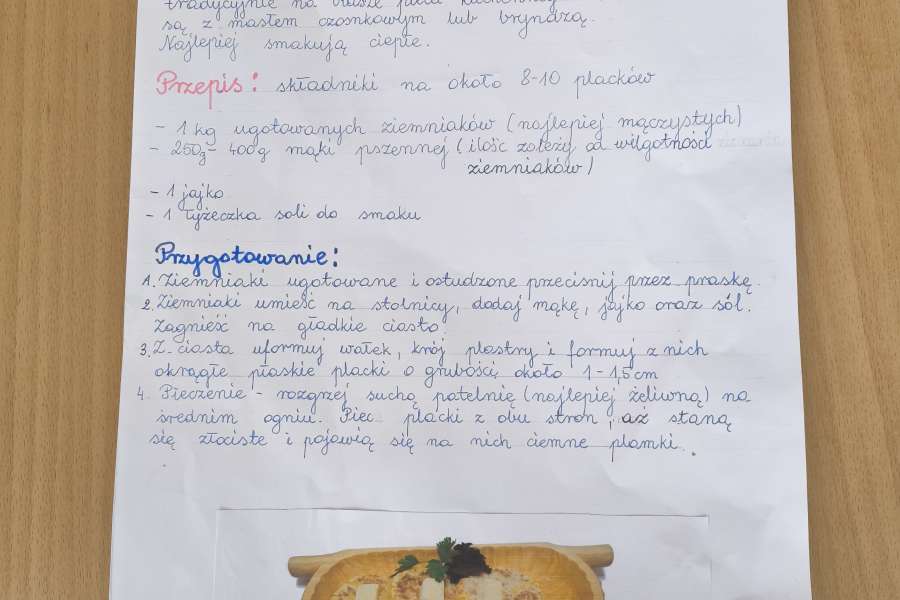 tradycyjnie na blasze pieca
są z masłem czosnkowym lub bryndzą.
Najlepiej smakują ciepłe.
Przepis: składniki na około 8-10 placków
- 1 kg ugotowanych ziemniaków (najlepiej mączystych)
- 250g - 400g mąki pszennej (ilość zależy od wilgotności
ziemniaków)
- 1 jajko
- 1 łyżeczka soli do smaku
Przygotowanie:
1. Ziemniaki ugotowane i ostudzone przeciśnij przez praskę.
2. Ziemniaki umieść na stolnicy, dodaj mąkę, jajko oraz sól.
Zagnieść na gładkie ciasto.
3. Z ciasta uformuj wałek, krój plastry i formuj z nich
okrągłe płaskie placki o grubości około 1-1,5cm
4. Pieczenie - rozgrzej suchą patelnię (najlepiej żeliwną) na
średnim ogniu. Piec placki z obu stron, aż staną
się złociste i pojawią się na nich ciemne plamki.